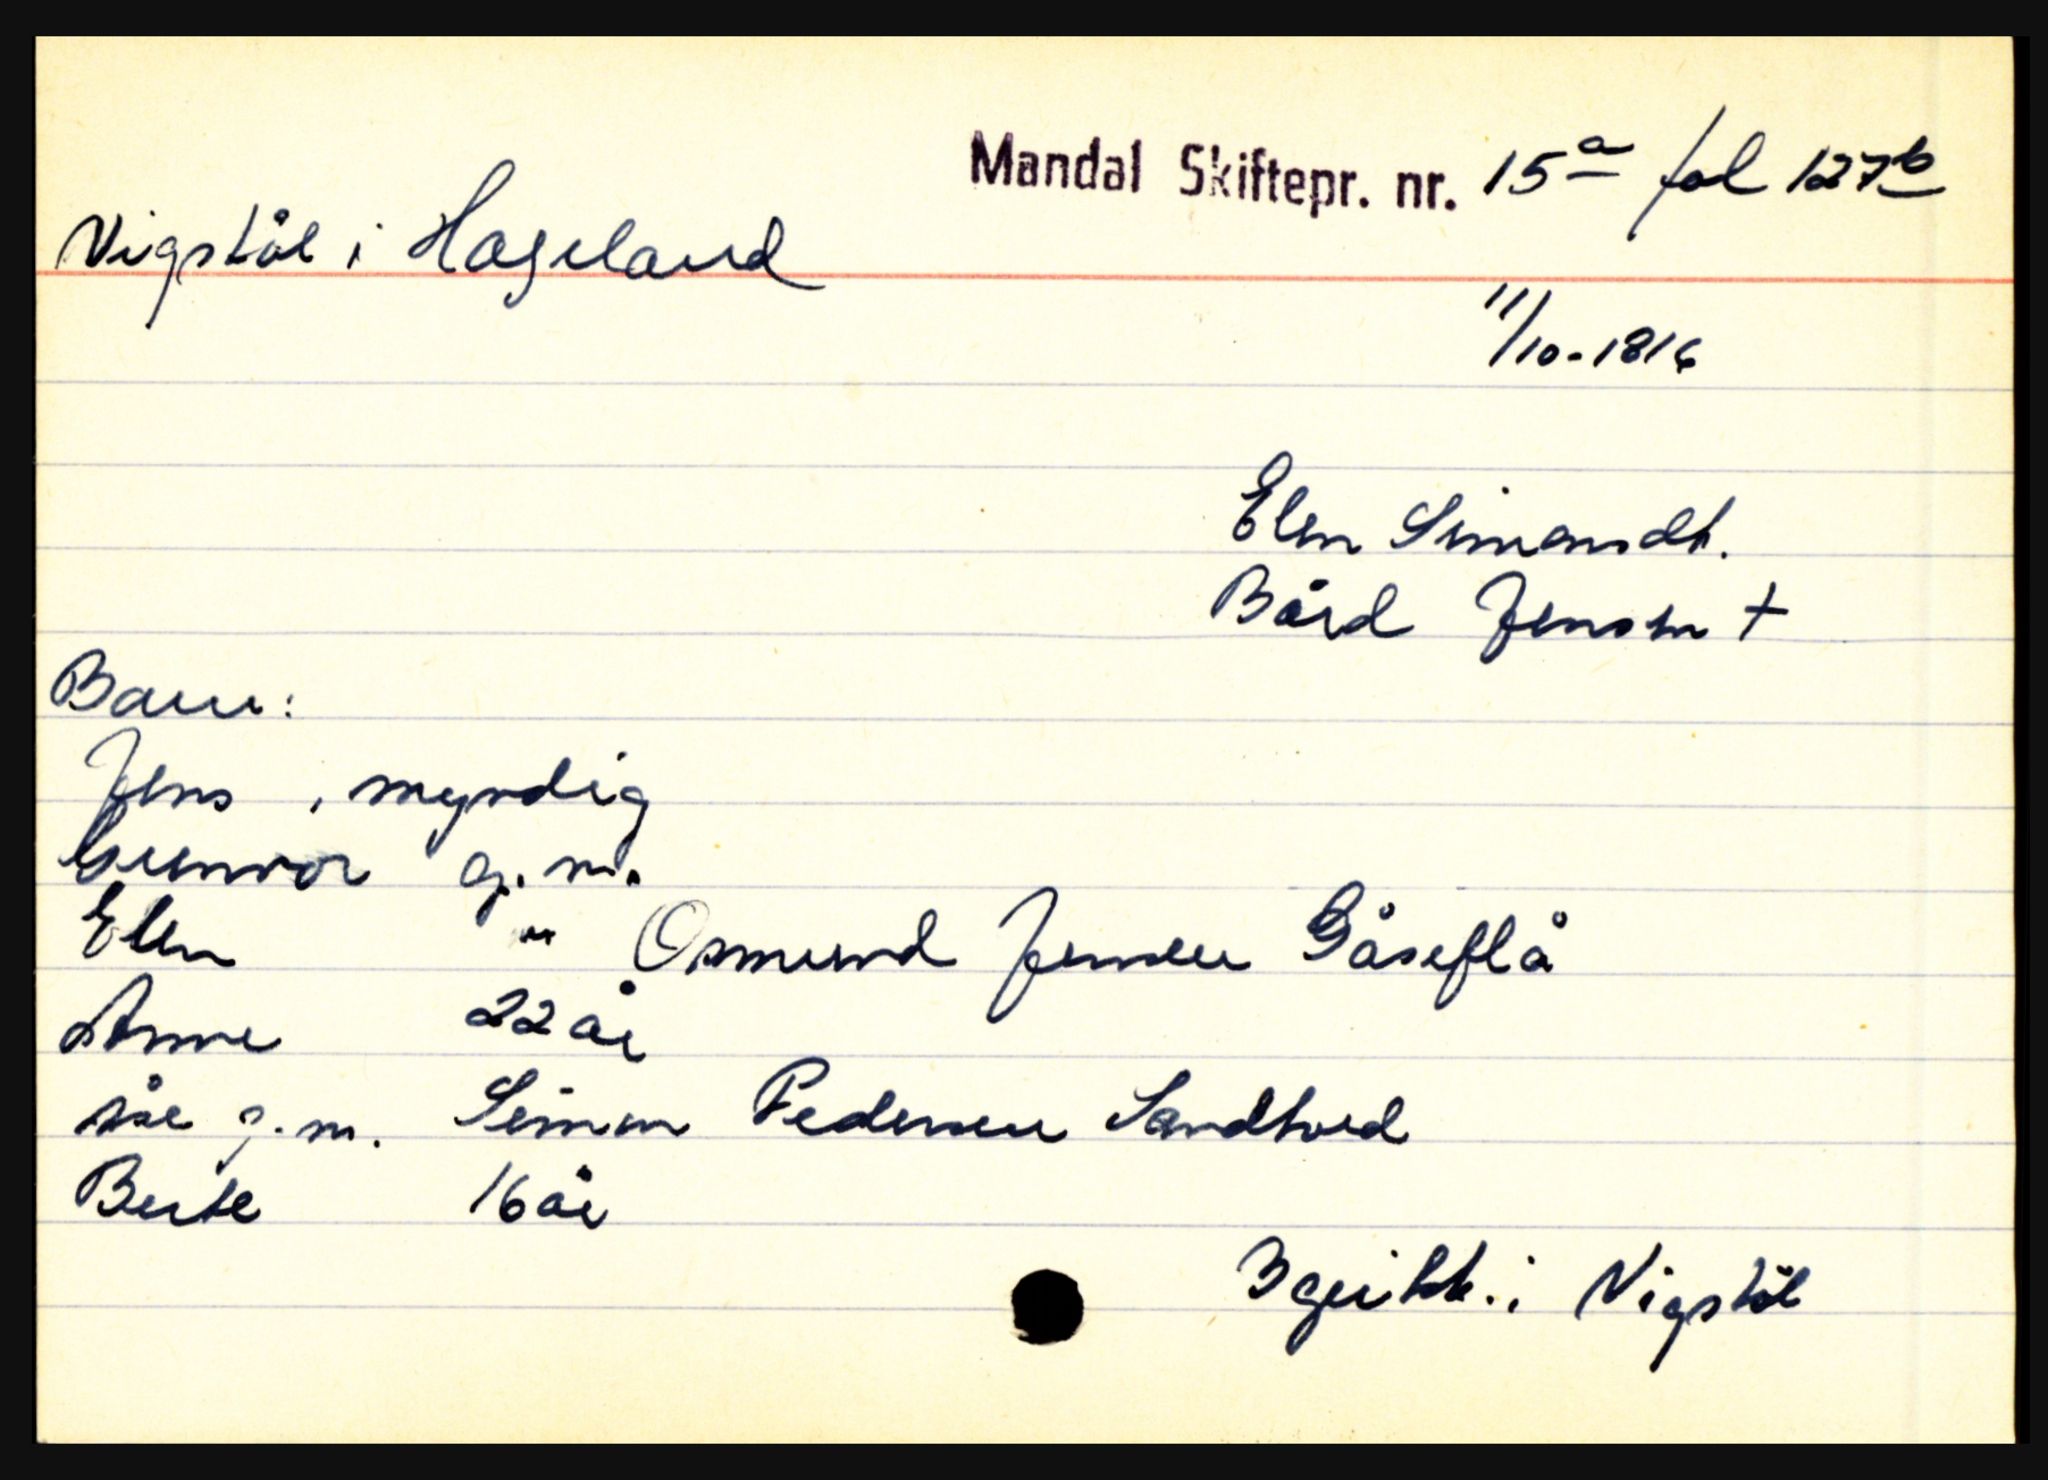 Mandal Skiftepr. nr. 15a fol 127b
Vigstøl i Hageland
11/10-1816
Elen Simonsdt.
Bård Jensen +
Barn:
Jens , myndig
Gunvor g.m.
Elen " Osmund Jensen Gåseflå
Anne 22 år
Åse g.m. Simon Pedersen Sandtved
Berte 16 år
i Vigstøl